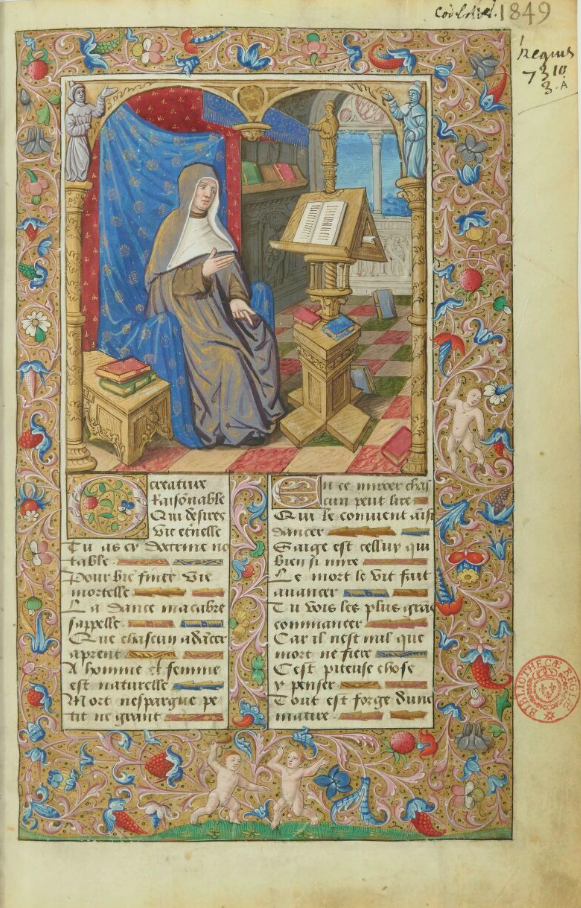 1849
Regius
7310
3.A
creature
Raisonable
Qui desires
vie eternelle
Tu as cy doctrine no
table
Pour bie finer vie
mortelle
La dance macabre
sappelle
Que chascun a dacer
aprent
A homme et femme
est naturelle
Mort nespargne pe
tit ne grant
En ce miroer chas
cun peut lire
Qui le convient ainsi
dancer
Saige est celluy qui
bien si mire
Le mort le vif fait
auancer
Tu vois les plus grans
commancer
Car il nest nul que
mort ne fiere
Cest piteuse chose
y penser
Tout est forge dune
matiere